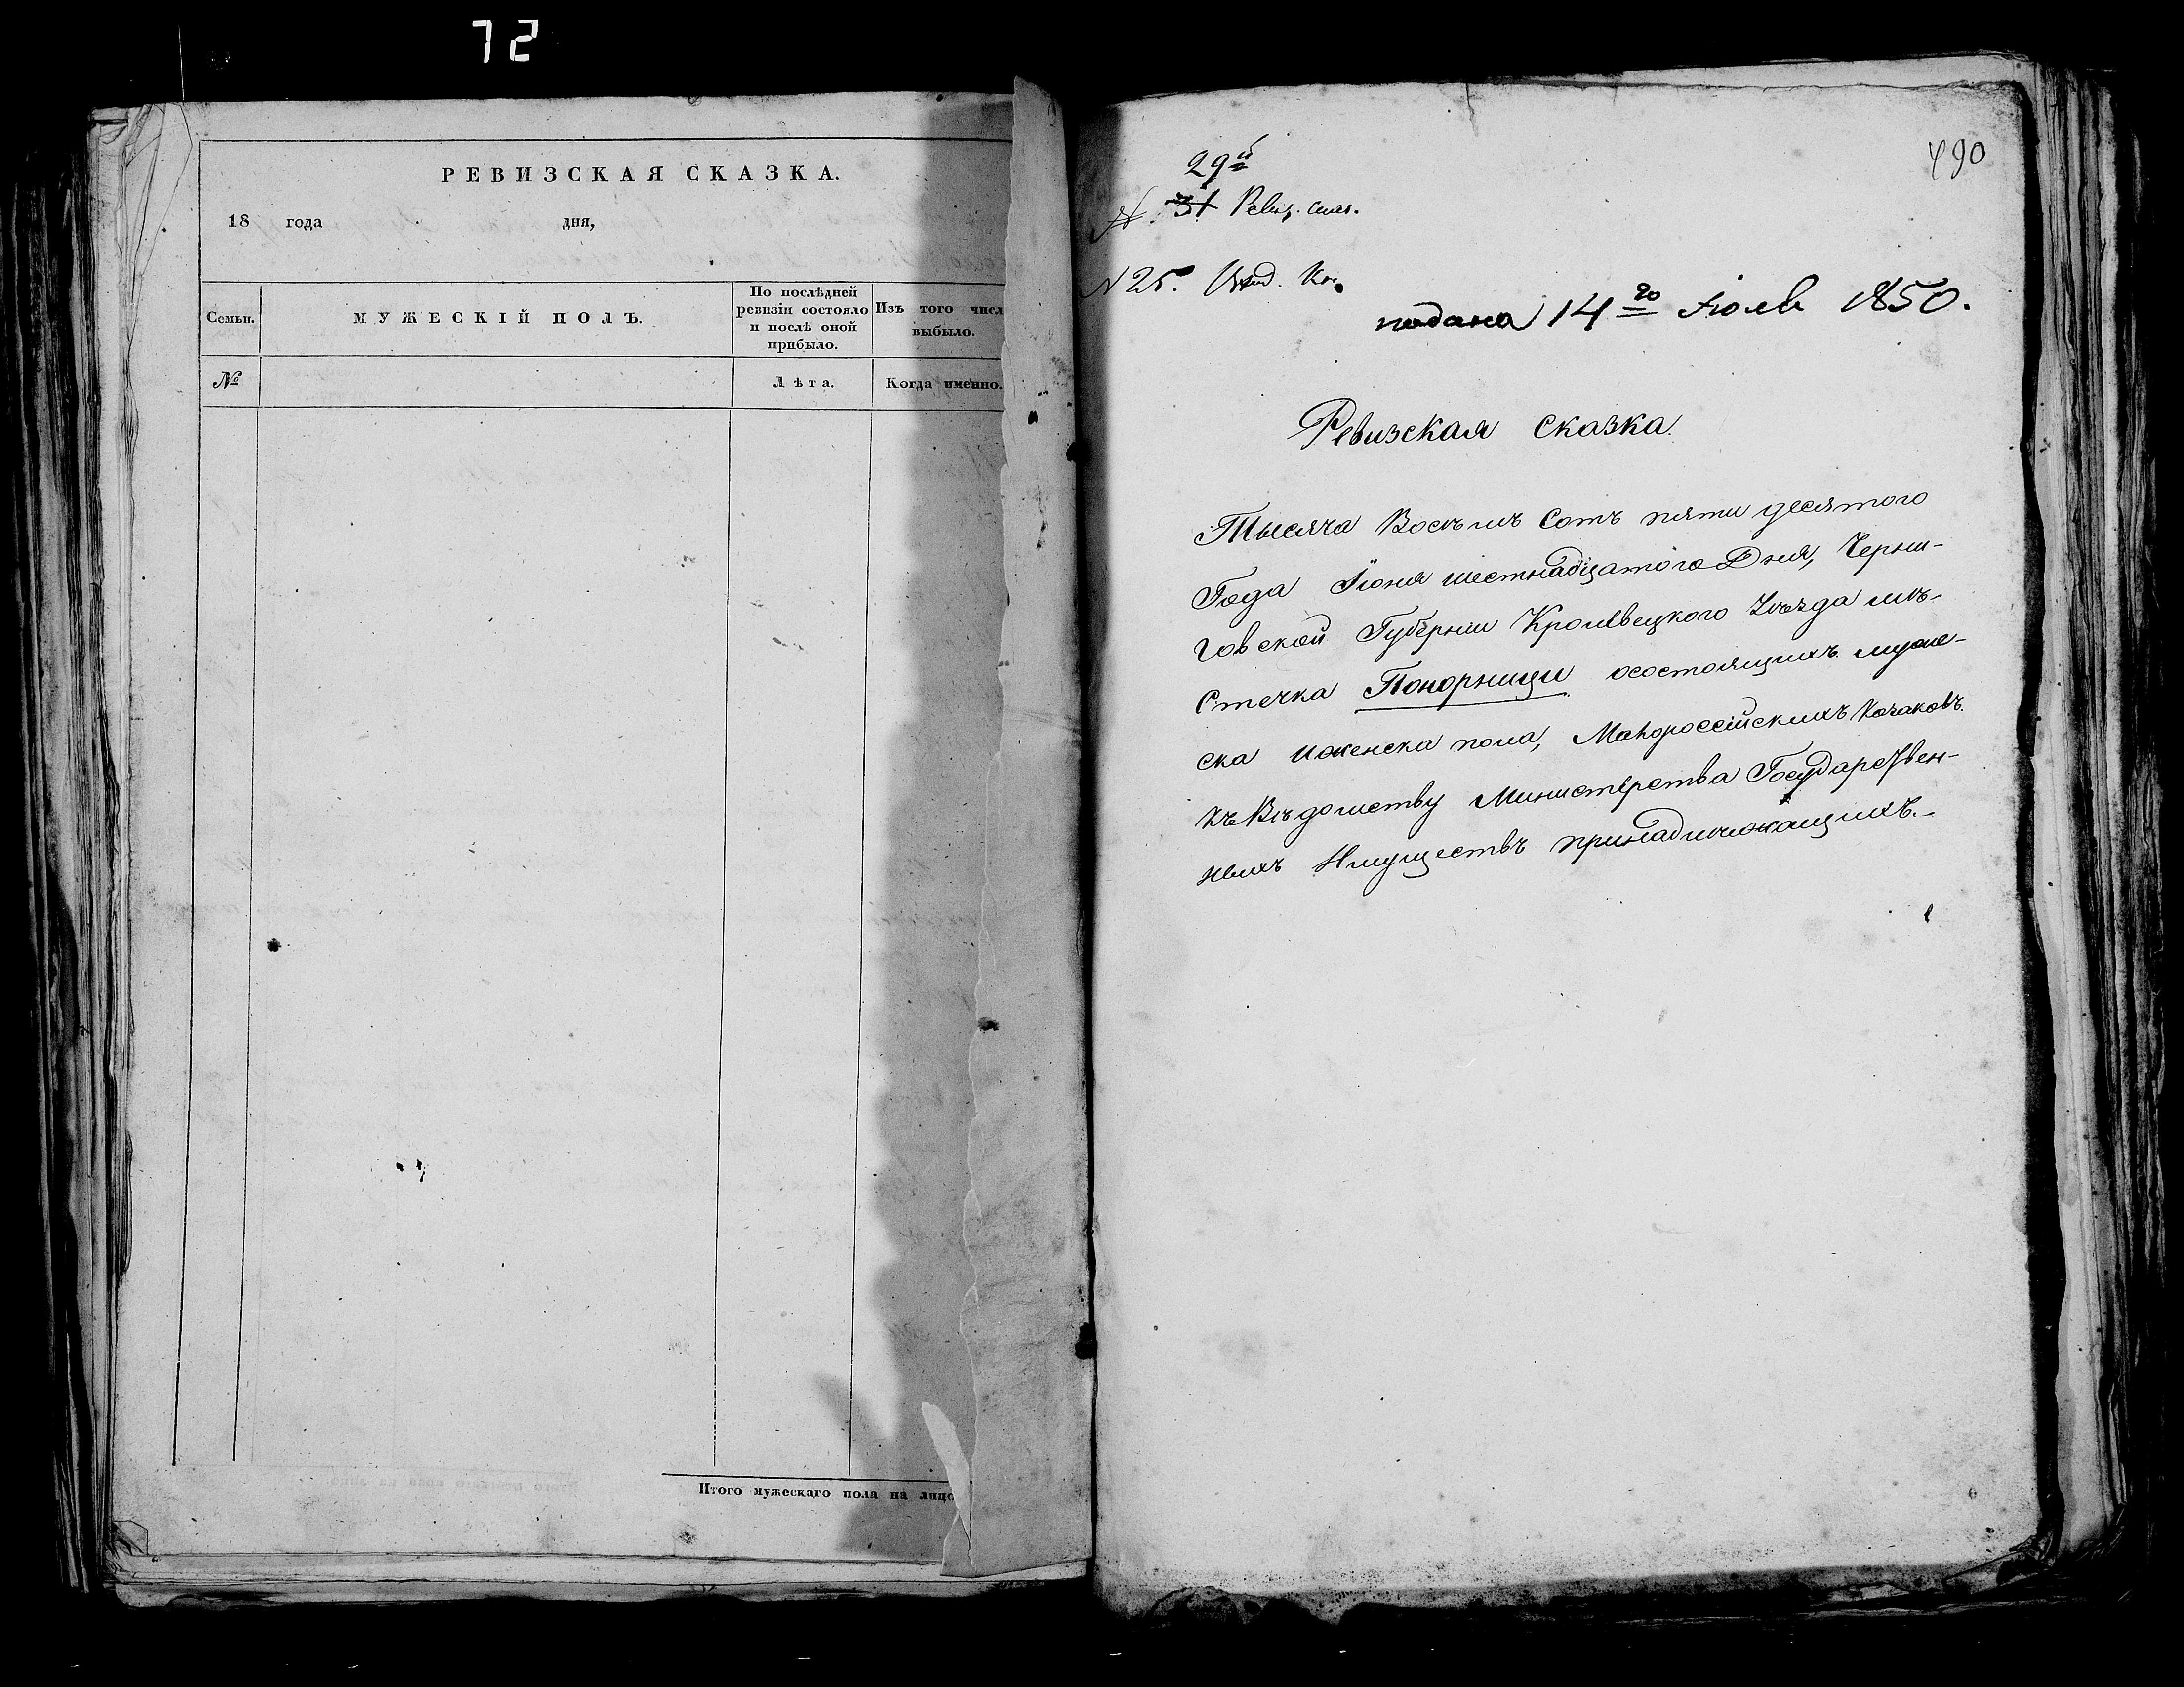 72
РЕВИЗСКАЯ СКАЗКА.
18 года дня,
Семьи.
МУЖЕСКІЙ ПОЛЪ.
По послѣдней
ревизіи состояло
и послѣ оной
прибыло.
Изъ того числ
выбыло.
№
Лѣта.
Когда именно.
Итого мужескаго пола на лицо
490
29й
№ 31 Ревиз. сказ.
N 25.
подана 14го Іюля 1850.
Ревизская сказка.
Тысяча Восѣмъ Сотъ пяти десятого
Года Іюня шестнадцатого Дня, Черни-
говской Губерніи Кролевецкого Уѣзда мѣ-
стечка Понорници осостоящихъ муже-
ска иженска пола, Малороссійскихъ Козаковъ.
къ Вѣдомству Министерства Государствен-
ныхъ Имуществъ принадлежащихъ.-